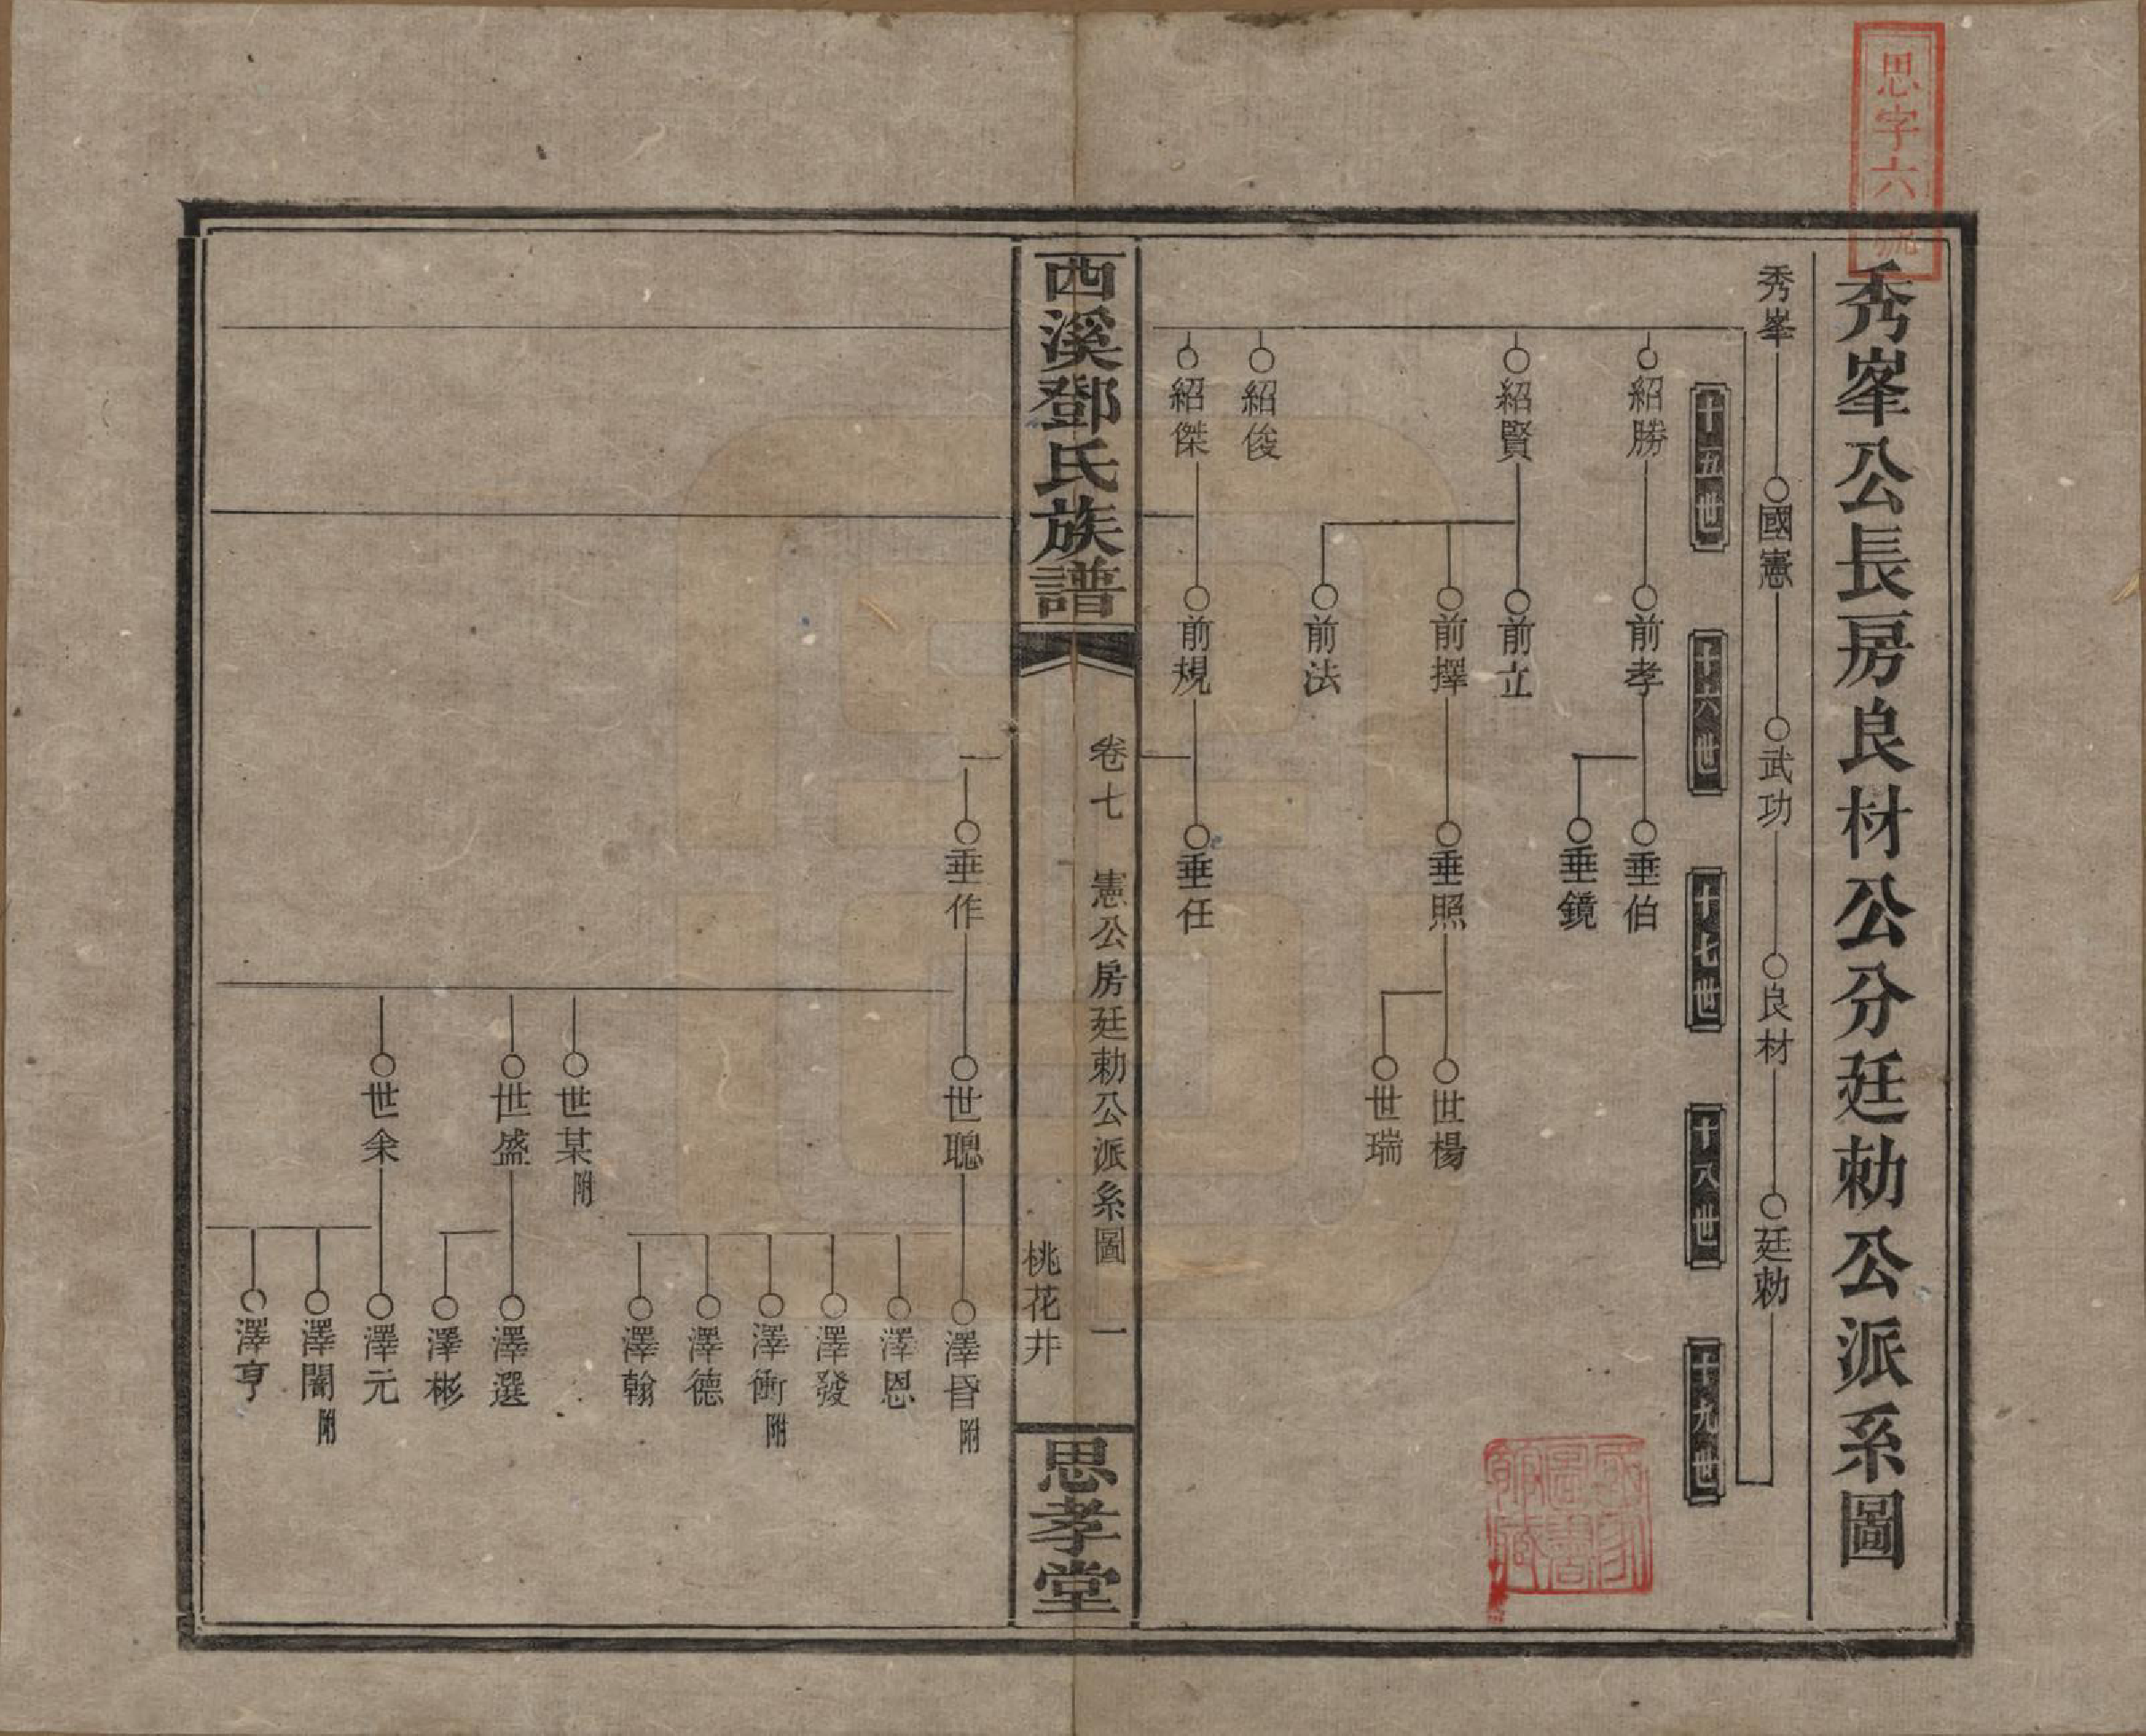 思字六號
秀峯公長房良材公分廷勅公派系圖
秀峯
國憲
武功
良材
廷勅
十五世
十六世
十七世
十八世
十九世
紹勝
前孝
垂伯
垂鏡
紹賢
前立
前擇
垂照
世楊
世瑞
前法
紹俊
紹傑
前規
垂任
西溪鄧氏族譜
卷七
憲公房廷勅公派系圖
一
桃花井
思孝堂
垂作
世聰
澤昏附
澤恩
澤發
澤衝附
澤德
澤翰
世某附
世盛
澤選
澤彬
世余
澤元
澤闇附
澤亨